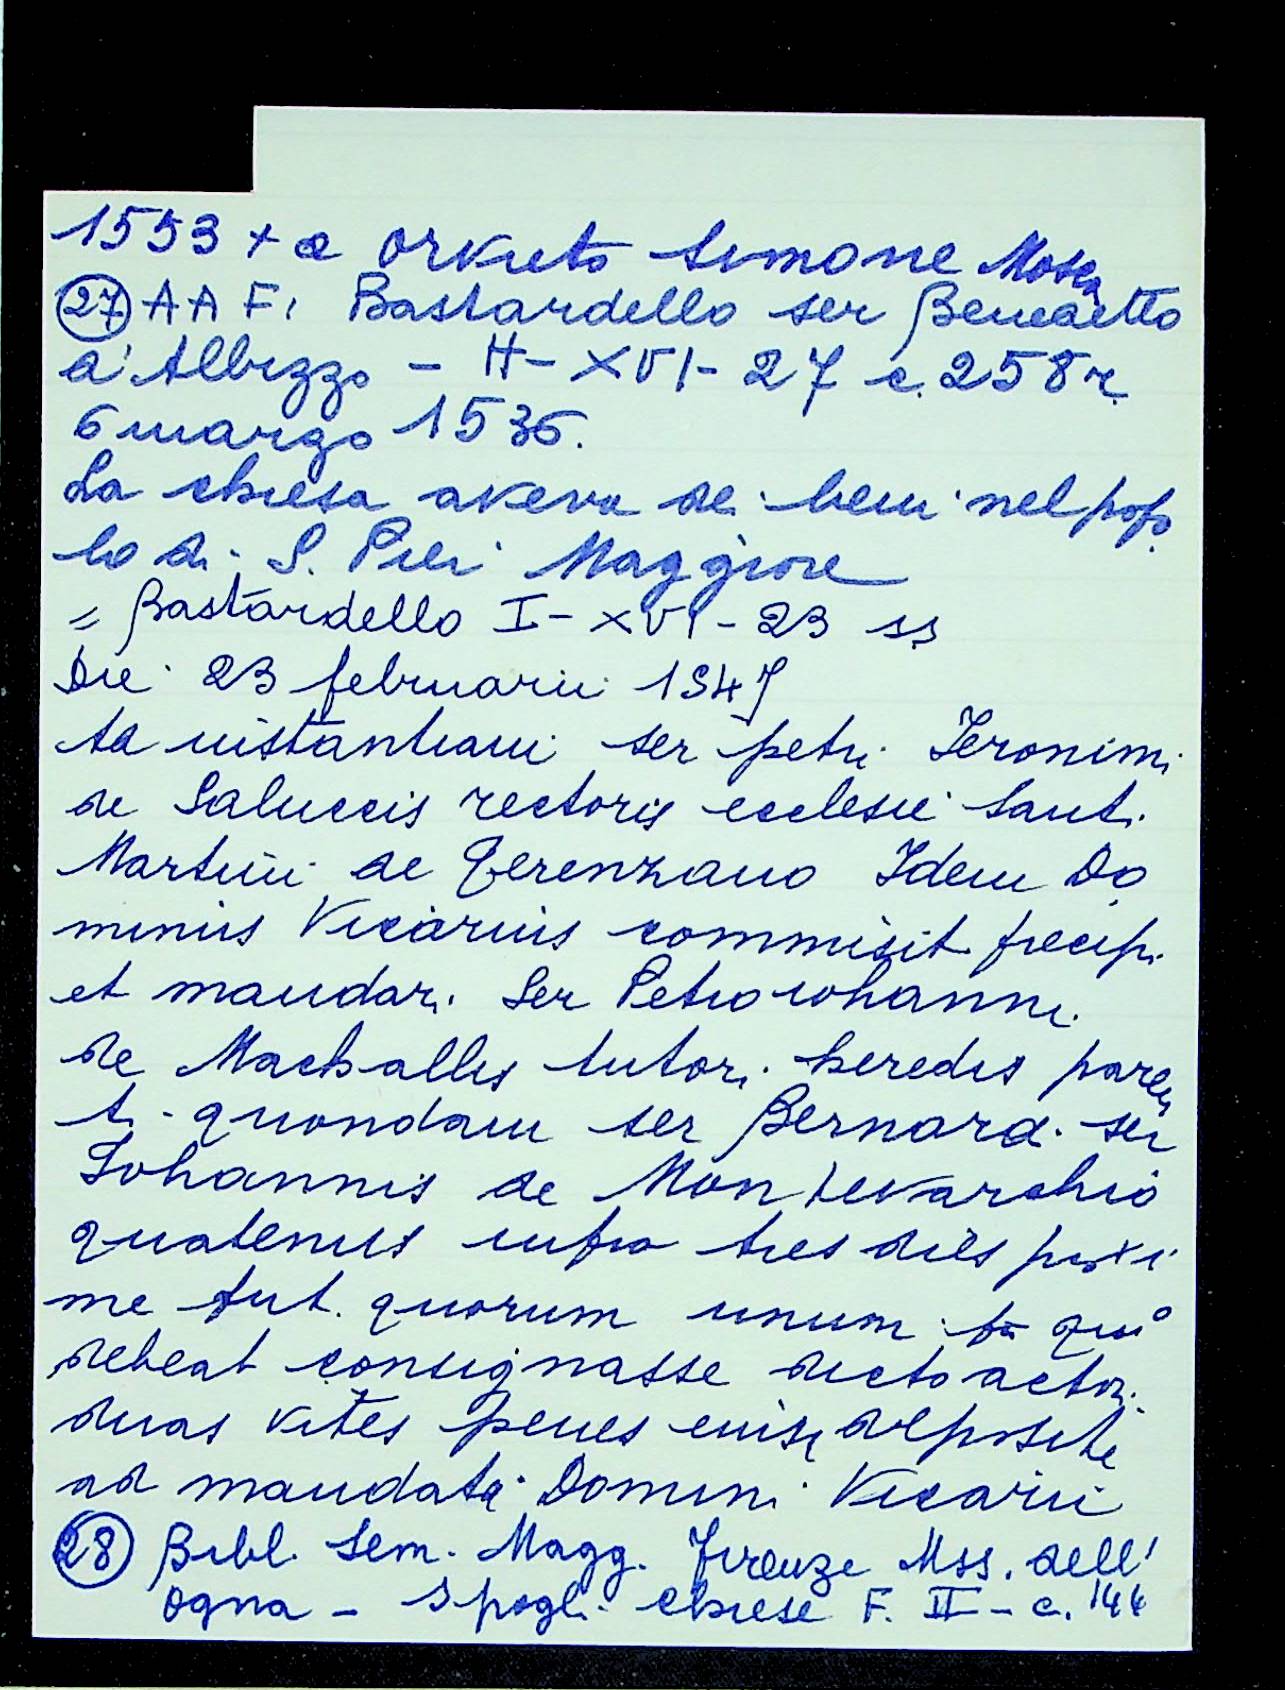 1553 + a Orvieto Simone Mosca
(27) A A F. Bastardello ser Benedetto
d'Albizzo - H - XVI - 27 c. 258 r.
6 marzo 1536.
La chiesa aveva dei beni nel popo
lo di S. Pier Maggiore
= Bastardello I - XVI - 23 ss
Die 23 februarii 1547
Ad instantiam ser petri Ieronimi
de Saluccis rectoris ecclesie Santi
Martini de Terenzano Idem Do
minus Vicarius commisit precip.
et mandari Ser Petro Iohanni
de Machallis tutori heredis
quondam ser Bernard. ser
Iohannis de Montevarchio
quatenus infra tres dies proxi
me fut. quorum unum
debeat consignasse dicto actori
duas vites penes eum deposite
ad mandata Domini Vicarii
(28) Bibl. Sem. Magg. Firenze Mss. dell'
Ogna - Spogli Chiese F. II - c. 144